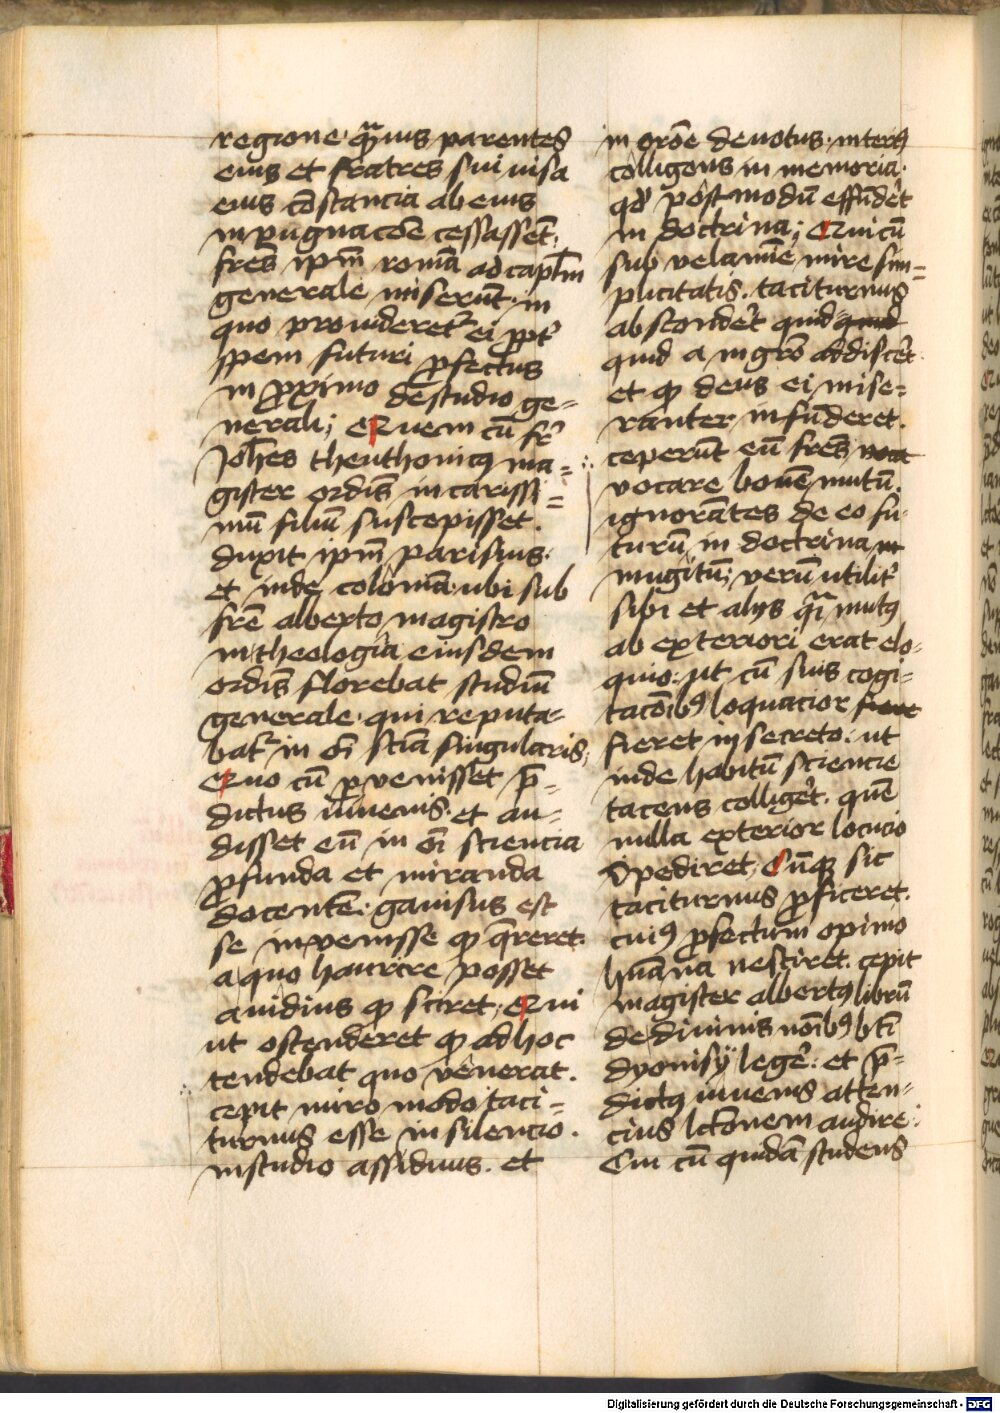 regione · q̄ᵃuis parentes
eius et fratres sui uisa
eius cōstancia ab eius
inpugnacōe cessassent.
frēs ip̄m romā ad capl̄m
generale miserūt · in
quo prouideretʳ ei ꝓpť
spem futuri ꝓfectus
in ꝓximo de studio ge=
nerali; Quem cū fr̄
Joh̄es theuthonicꝰ ma=
gister ordīs in carissi=
mū filiū suscepisset.
duxit ip̄m parisius.
et inde colōniā · ubi sub
frē alberto magistro
in theologia eiusdem
ordīs florebat studiū
generale · qui reputa=
batʳ in oī sciā singularis;
Quo cū ꝑvenisset p̄=
dictus iuuenis · et au=
disset eū in oī sciencia
ꝓfunda et miranda
docentē. gauisus est
se inuenisse ꝙ q̄reret.
a quo haurire posset
auidius ꝙ sciret; Qui
ut ostenderet ꝙ ad hoc
tendebat quo vēnerat.
cepit miro modo taci=
turnus esse in silencio.
in studio assiduus. et
in orōe deuotus. interiꝰ
colligens in memoria.
qd̄ postmodū effūdēt
in doctrina; Qui cū
sub velamīe mire sim=
plicitatis. taciturnus
absconderet quid quid
quid a mgrō addisceret.
et ꝙ deus ei mise=
ranter infūderet.
ceperūt eū frēs voca
vocare bouem mutū.
ignorātes de eo fu-
turū in doctrina m
mugitū; verū utilit̄
sibi et alijs q̄ᵃ mutꝰ
ab exteriori erat elo-
quio: ut cū suis cogi-
tacōibꝰ loquacior fieret
fieret in secreto: ut
inde habitū sciencie
tacens colligēt. quē
nulla exterior locucio
īpediret; Cūqꝫ sic
taciturnus ꝓficeret.
cuiꝰ ꝓfectum opinio
hūana nesciret. cepit
magister albertꝰ librū
de diuinis noībꝰ bt̄i
dyonisij legēr. et p̄=
dictꝰ iuuenis atten-
cius lc̄tōnem audire.
Cui cū quidā studens
Digitalisierung gefördert durch die Deutsche Forschungsgemeinschaft - DFG